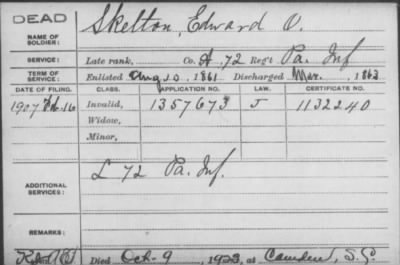 DEAD
NAME OF SOLDIER: Skelton, Edward O.
SERVICE: Late rank, Co. A, 72 Reg't Pa. Inf
TERM OF SERVICE: Enlisted Aug 10, 1861 Discharged Mar. , 1863
DATE OF FILING. CLASS. APPLICATION NO. LAW. CERTIFICATE NO.
1907 Feb. 16 Invalid, 1357673 J 1132240
Widow,
Minor,
ADDITIONAL SERVICES: L 72 Pa. Inf.
REMARKS:
Died Oct. 9, 1923, at Camden, S.C.